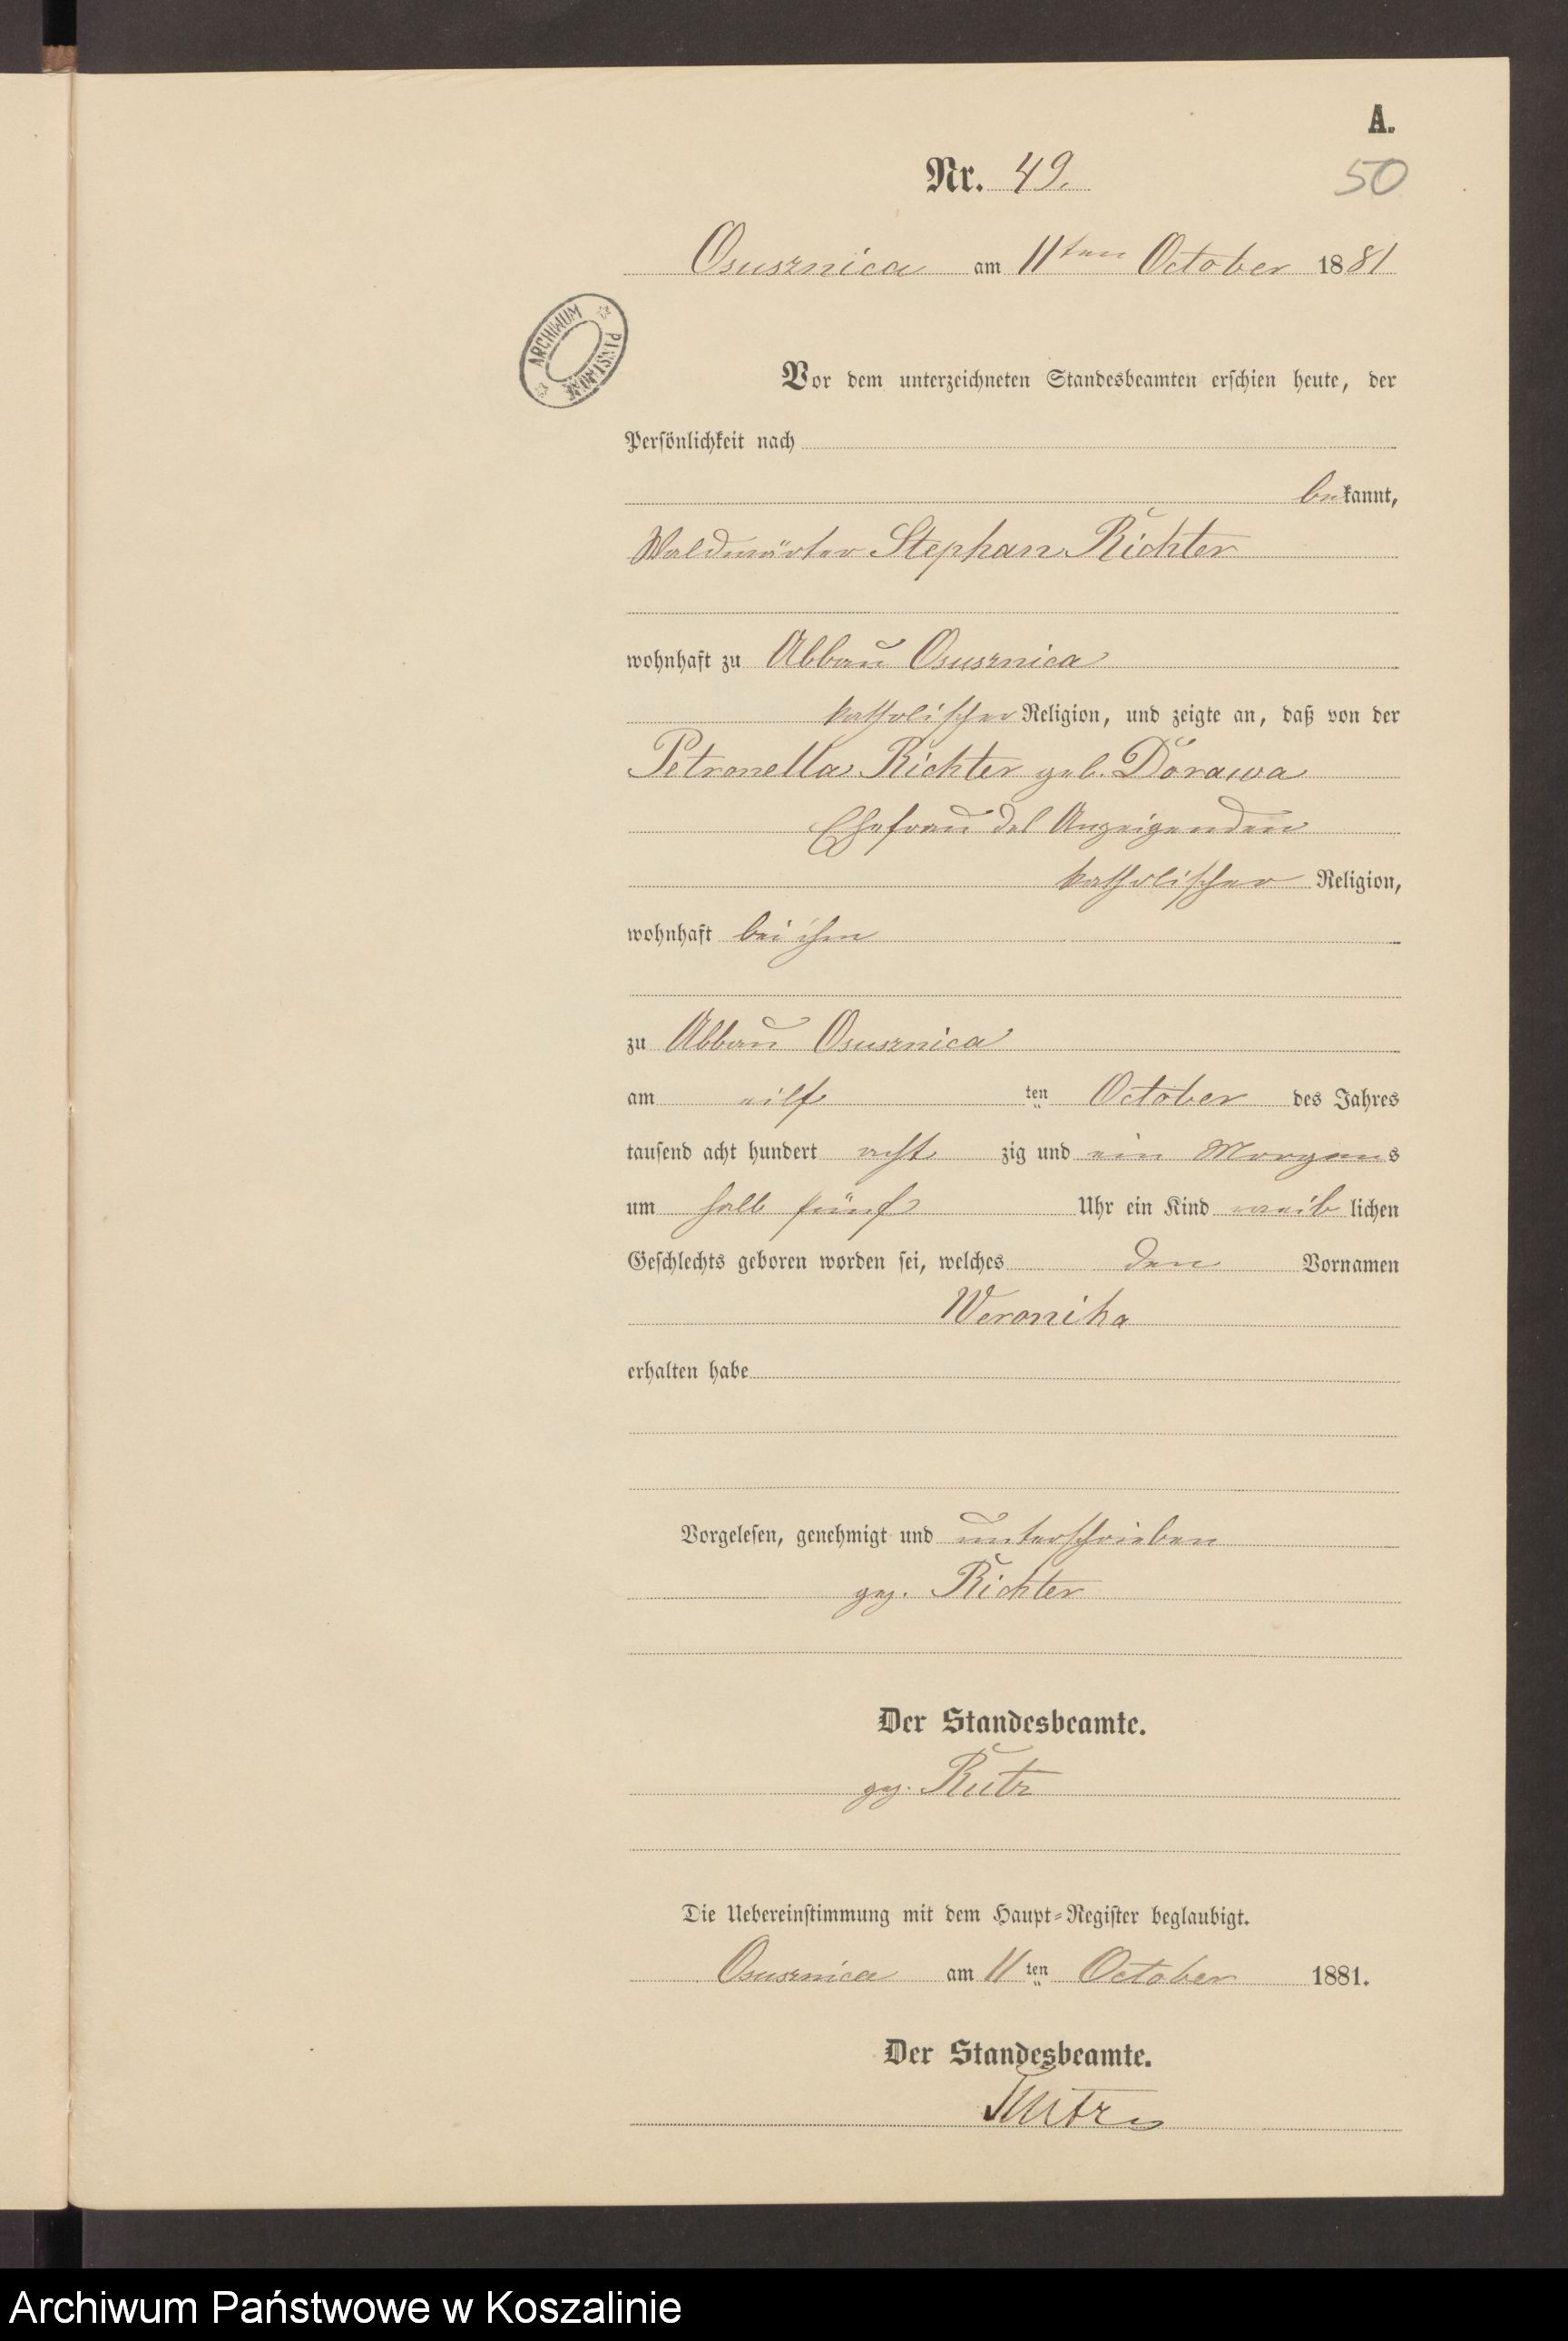 A.
Nr. 49.
50
Osusznica am 11ten October 1881
ARCHIWUM PAŃSTWOWE
Vor dem unterzeichneten Standesbeamten erschien heute, der
Persönlichkeit nach
bekannt,
Waldwärter Stephan Richter
wohnhaft zu Abbau Osusznica
katholischer Religion, und zeigte an, daß von der
Petronella Richter geb. Dorawa
Ehefrau des Anzeigenden
katholischer Religion,
wohnhaft bei ihm
zu Abbau Osusznica
am eilf ten October des Jahres
tausend acht hundert acht zig und ein Morgens
um halb fünf Uhr ein Kind weib lichen
Geschlechts geboren worden sei, welches den Vornamen
Weronika
erhalten habe
Vorgelesen, genehmigt und unterschrieben
gez. Richter
Der Standesbeamte.
gez. Rutz
Die Uebereinstimmung mit dem Haupt-Register beglaubigt.
Osusznica am 11ten October 1881.
Der Standesbeamte.
Rutz
Archiwum Państwowe w Koszalinie